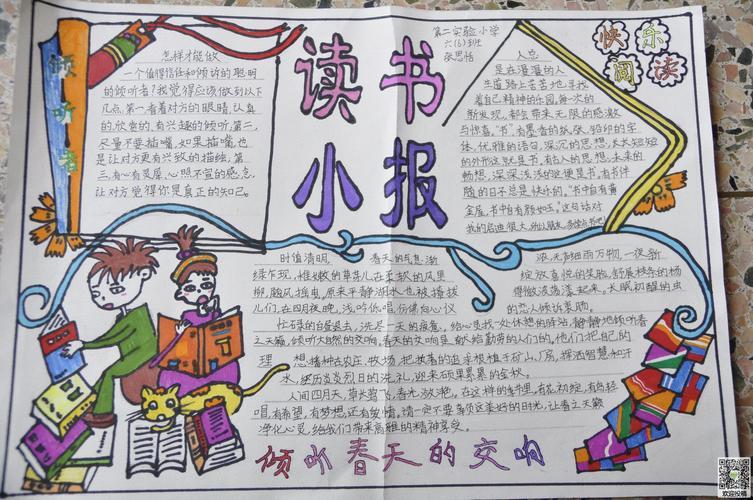 倾听者
怎样才能做
一个值得信任和倾诉的聪明
的倾听者?我觉得应该做到以下
几点:第一,看着对方的眼睛,认真
的,欣赏的,有兴趣的倾听。第二,
尽量不要插嘴,如果插嘴,也
是让对方更有兴致的描绘。第
三,有心有灵犀,心照不宣的感念,
让对方觉得你是真正的知己。
读书
小报
第二实验小学
六(6)班
张思恬
快乐
阅读
人总
是在漫漫的人
生道路上苦苦地寻找
着自己精神的乐园。每一次的
新发现,都会带来无限的感激
与惊喜。"书",有墨香的纸张,铅印的字
体,优雅的语句,深沉的思想,长长短短
的外形这就是书,有古人的思想,未来的
畅想,深深浅浅的这便是书,有书伴
随的日子总是快乐的。"书中自有黄
金屋,书中自有颜如玉。"这句话对
我的启迪很大,
时值清明,春天的气息渐
绿乍现,惟嫩的草芽儿在柔软的风里
原来平静湖水也被撩拨
儿们,在四月夜晚,浅吟低唱,仿佛向心仪
浓,无声细雨万物,一夜新
绽放喜悦的笑脸,舒展枝条的杨
得微波荡漾起来。长眠初醒的虫
的恋人倾诉衷肠。
忙碌的白昼退去,洗尽一天的疲惫,给心灵找一处休憩的驿站,静静地倾听春
之天籁,倾听大自然的交响。春天的交响是献给勤劳的人们的,他们把自己的
理想播种在农庄,牧场,把执着的追求根植于矿山,厂房,挥洒智慧和汗
水,经历炎炎烈日的洗礼,迎来硕果累累的金秋。
人间四月天,草长莺飞,春光放艳。在这样的季里,有花初绽,有鸟轻
唱,有希望,有梦想还有爱情,请一定不要辜负这美好的时光,让春之天籁
净化心灵,给我们带来高雅的精神享受。
倾听春天的交响
欢迎投稿